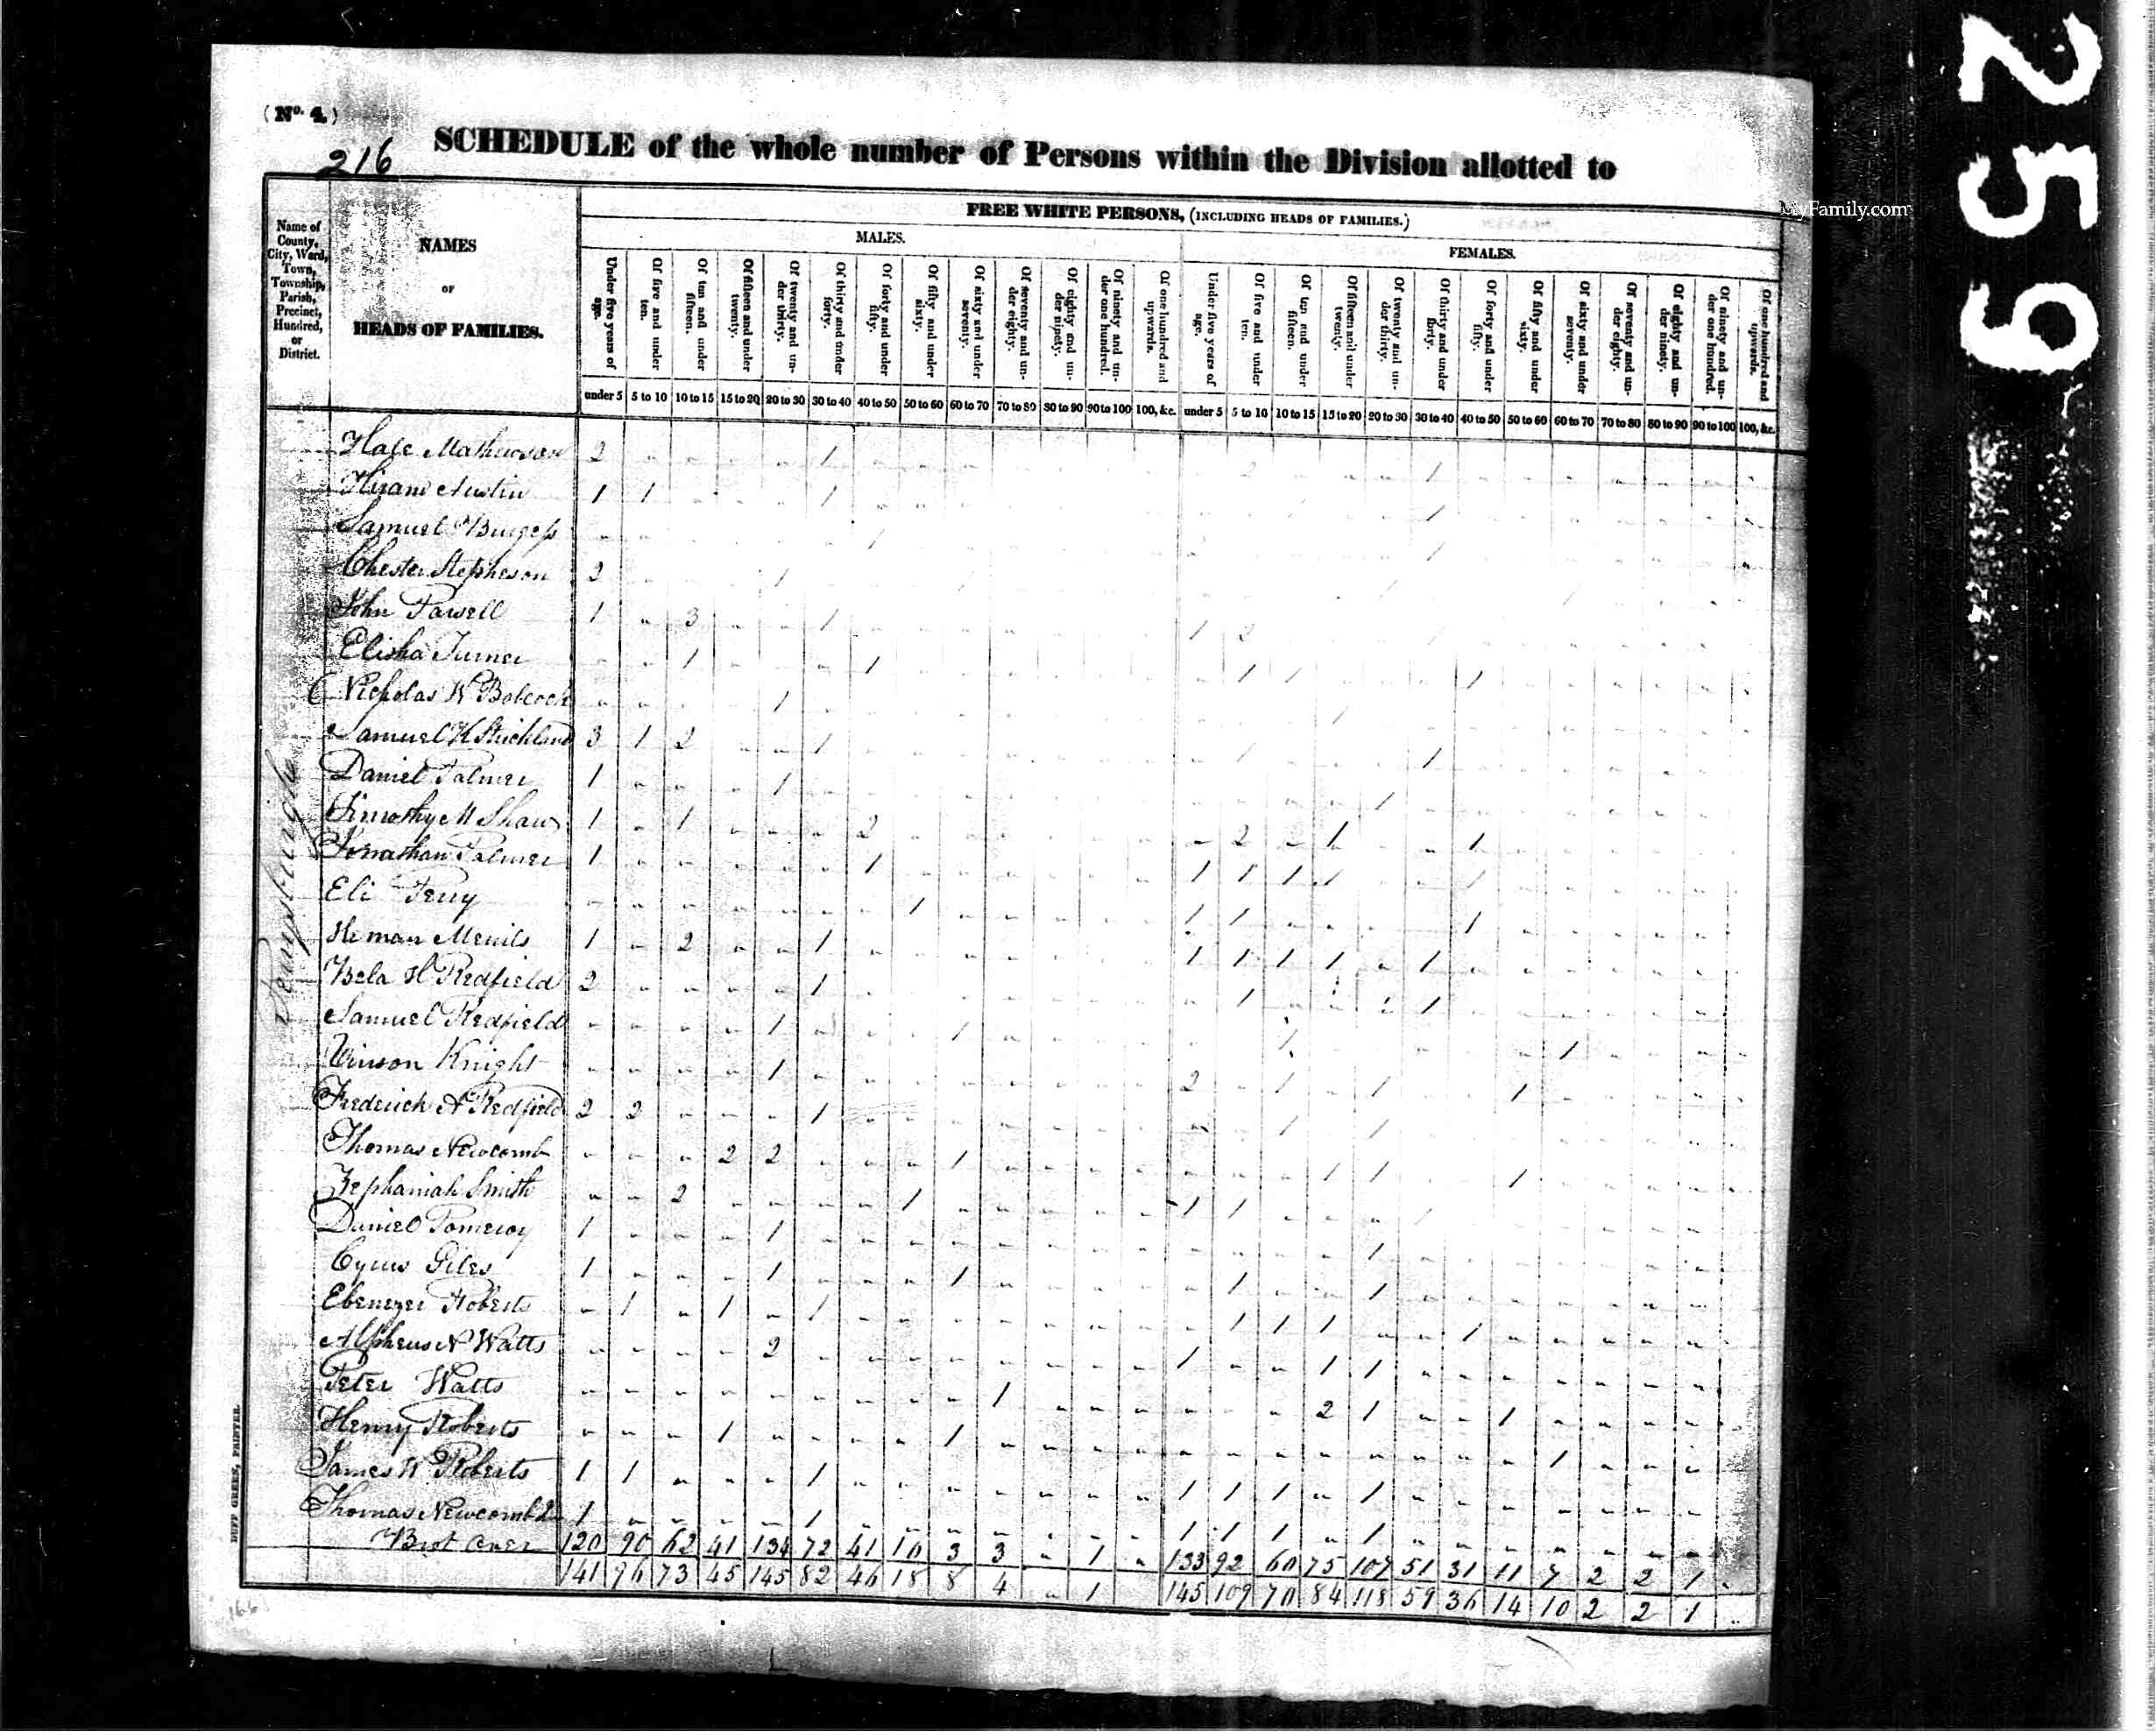 (No. 4.)
216
SCHEDULE of the whole number of Persons within the Division allotted to
Name of County, City, Ward, Town, Township, Parish, Precinct, Hundred, or District.
NAMES OF HEADS OF FAMILIES.
FREE WHITE PERSONS, (INCLUDING HEADS OF FAMILIES.)
MALES. FEMALES.
Under five years of age. Of five and under ten. Of ten and under fifteen. Of fifteen and under twenty. Of twenty and under thirty. Of thirty and under forty. Of forty and under fifty. Of fifty and under sixty. Of sixty and under seventy. Of seventy and under eighty. Of eighty and under ninety. Of ninety and under one hundred. Of one hundred and upwards. Under five years of age. Of five and under ten. Of ten and under fifteen. Of fifteen and under twenty. Of twenty and under thirty. Of thirty and under forty. Of forty and under fifty. Of fifty and under sixty. Of sixty and under seventy. Of seventy and under eighty. Of eighty and under ninety. Of ninety and under one hundred. Of one hundred and upwards.
under 5 5 to 10 10 to 15 15 to 20 20 to 30 30 to 40 40 to 50 50 to 60 60 to 70 70 to 80 80 to 90 90 to 100 100, &c. under 5 5 to 10 10 to 15 15 to 20 20 to 30 30 to 40 40 to 50 50 to 60 60 to 70 70 to 80 80 to 90 90 to 100 100, &c.
Hale Mathewson 2 1 2 1
Hiram Austin 1 1 1 1
Samuel Burgess 1 1
Chester Stepheson 2 1 1 1
John Farwell 1 3 1 1 2 1
Elisha Turner 1 1 1 1 1
Nicholas W Babcock 1 1
Samuel K Strickland 3 1 2 1 1 1
Daniel Palmer 1 1 1
Timothy M Shaw 1 1 2 2 1 1
Jonathan Palmer 1 1 1 1 1 1 1
Eli Perry 1 1 1 1
Heman 1 2 1 1 1 1 1 1
Bela H Redfield 2 1 1 1 1 1
Samuel Redfield 1 1 1 1
Vinson Knight 1 2 1 1 1
Frederick A Redfield 2 2 1 1 1
Thomas Newcomb 2 2 1 1 1 1
Zephaniah Smith 2 1 1 1 1
Daniel Pomeroy 1 1 1
Cyrus Giles 1 1 1 1 1
Ebenezer Roberts 1 1 1 1 1 1 1
Alpheus N Watts 2 1 1 1
Peter Watts 1 2 1 1
Henry Roberts 1 1 1
James W Roberts 1 1 1 1 1 1 1
Thomas Newcomb 2 1 1 1 1 1 1
Brot over 120 90 62 41 134 72 41 16 3 3 1 133 92 60 75 107 51 31 11 7 2 2 1
141 96 73 45 145 82 46 18 8 4 1 145 109 70 84 118 59 36 14 10 2 2 1
DUFF GREEN, PRINTER.
MyFamily.com
259